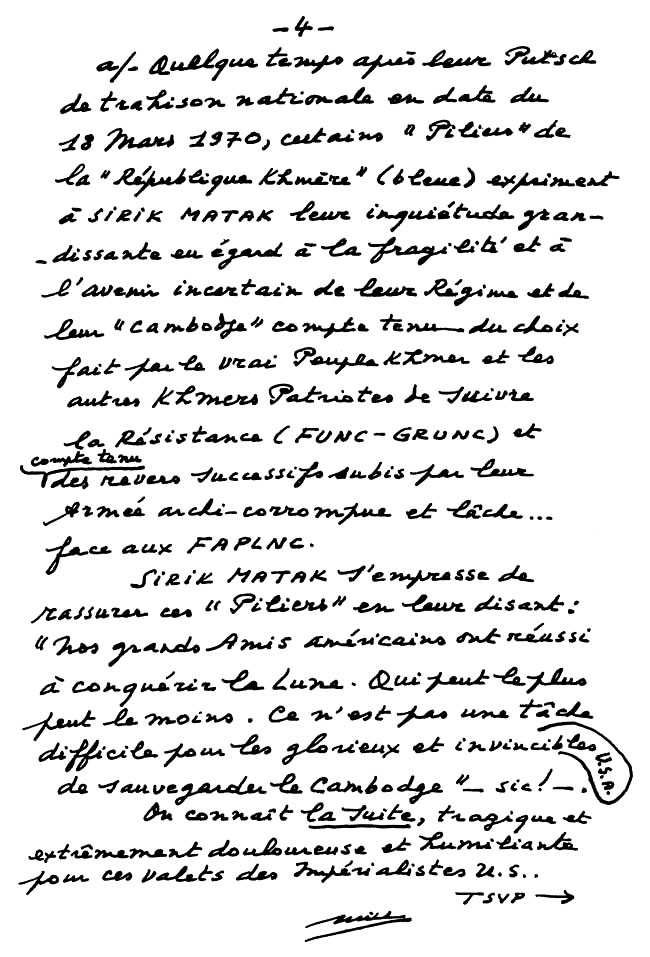 -4-
a/- Quelque temps après leur Putsch
de trahison nationale en date du
18 Mars 1970, certains "Piliers" de
la "République Khmère" (bleue) expriment
à SIRIK MATAK leur inquiétude gran-
-dissante eu égard à la fragilité et à
l'avenir incertain de leur Régime et de
leur "Cambodge" compte tenu du choix
fait par le vrai Peuple Khmer et les
autres Khmers Patriotes de suivre
la Résistance (FUNC-GRUNC) et
compte tenu
des revers successifs subis par leur
Armée archi-corrompue et lâche...
face aux FAPLNC.
SIRIK MATAK s'empresse de
rassurer ces "Piliers" en leur disant :
"Nos grands Amis américains ont réussi
à conquérir la Lune. Qui peut le plus
peut le moins. Ce n'est pas une tâche
difficile pour les glorieux et invincibles
U.S.A.
de sauvegarder le Cambodge" - sic! -.
On connaît la suite, tragique et
extrêmement douloureuse et humiliante
pour ces valets des Impérialistes U.S..
TSVP →